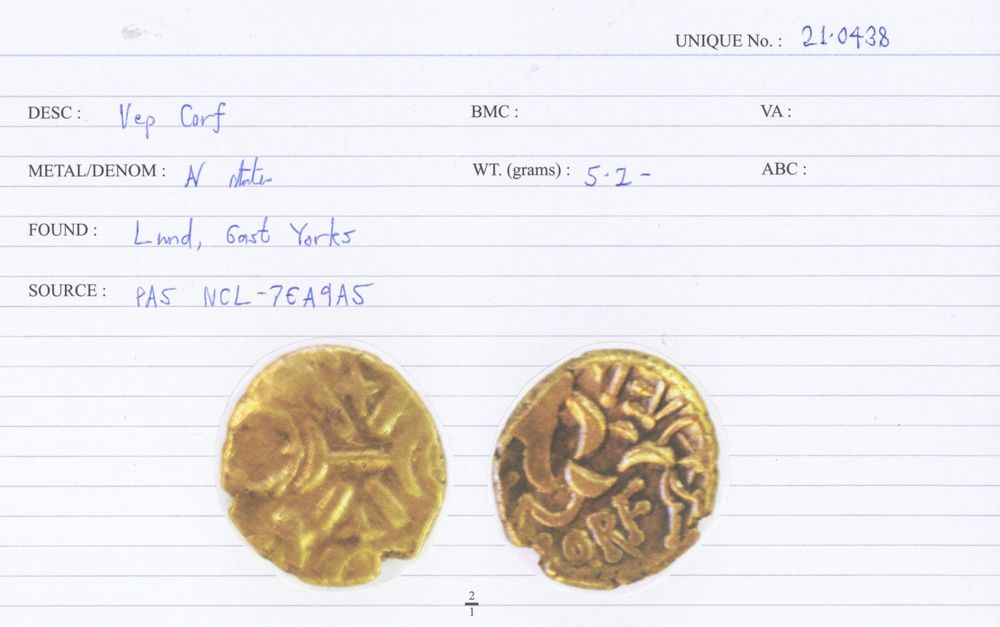 UNIQUE No. : 21.0438
DESC : Vep Corf BMC : VA :
METAL/DENOM : N stater WT. (grams) : 5.2- ABC :
FOUND : Lund, East Yorks
SOURCE : PAS NCL-7EA9A5
ORF
2
1